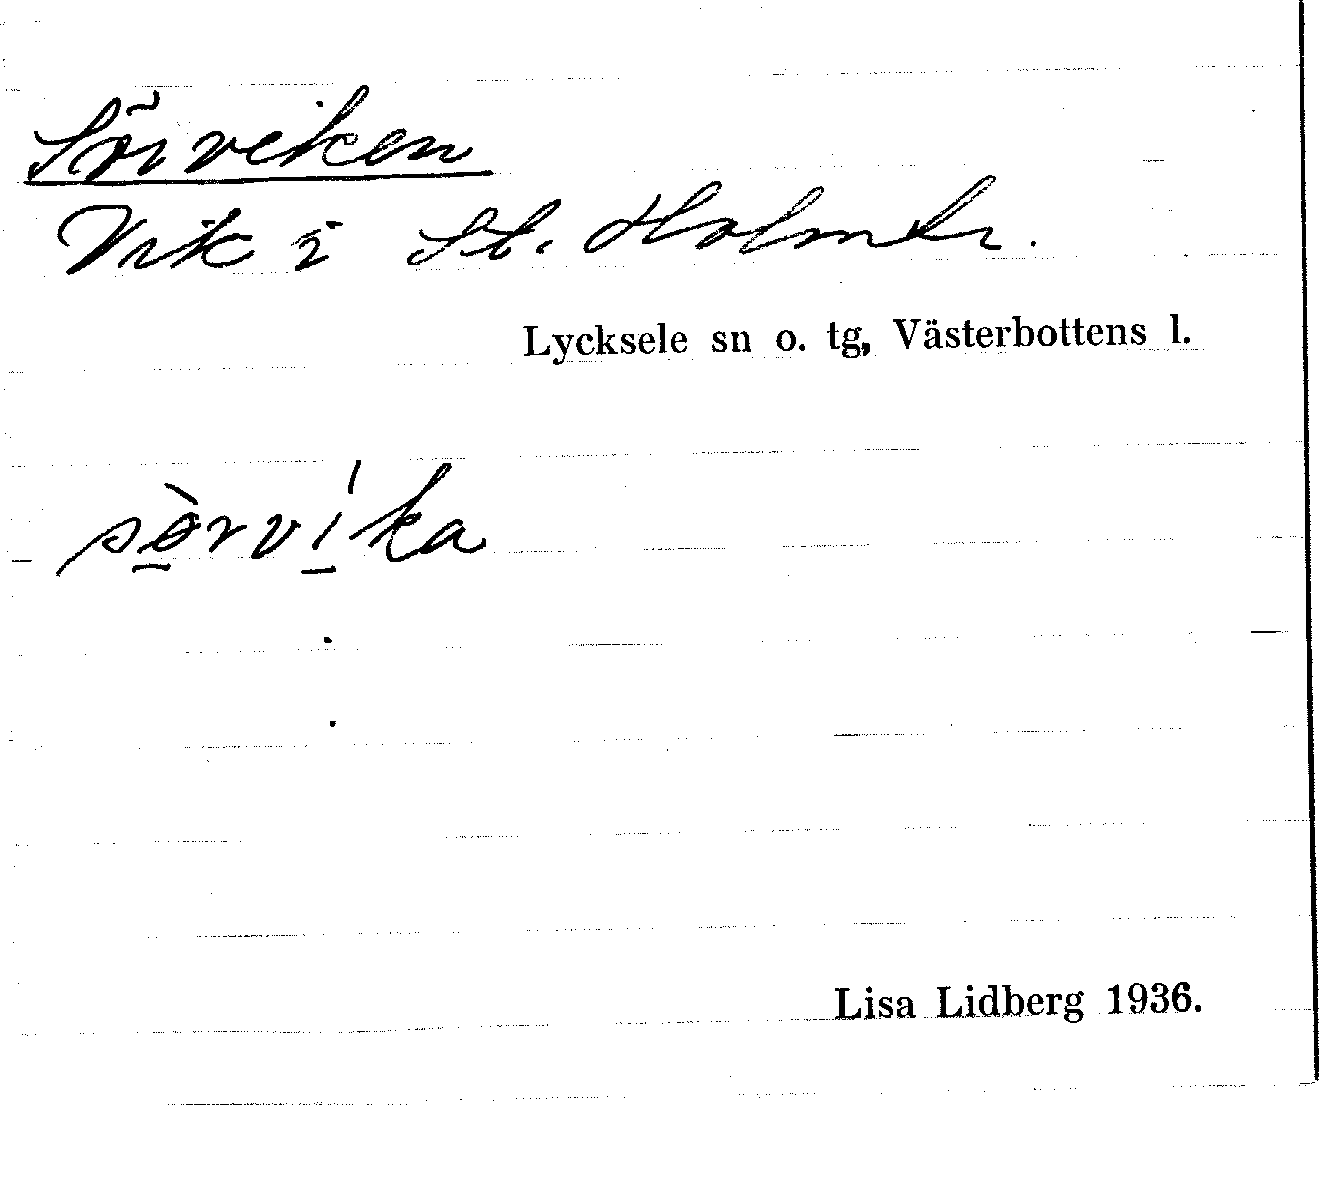 Sörviken
Vik i St. Holmtr.
Lycksele sn o. tg, Västerbottens l.
sòrvíka
Lisa Lidberg 1936.